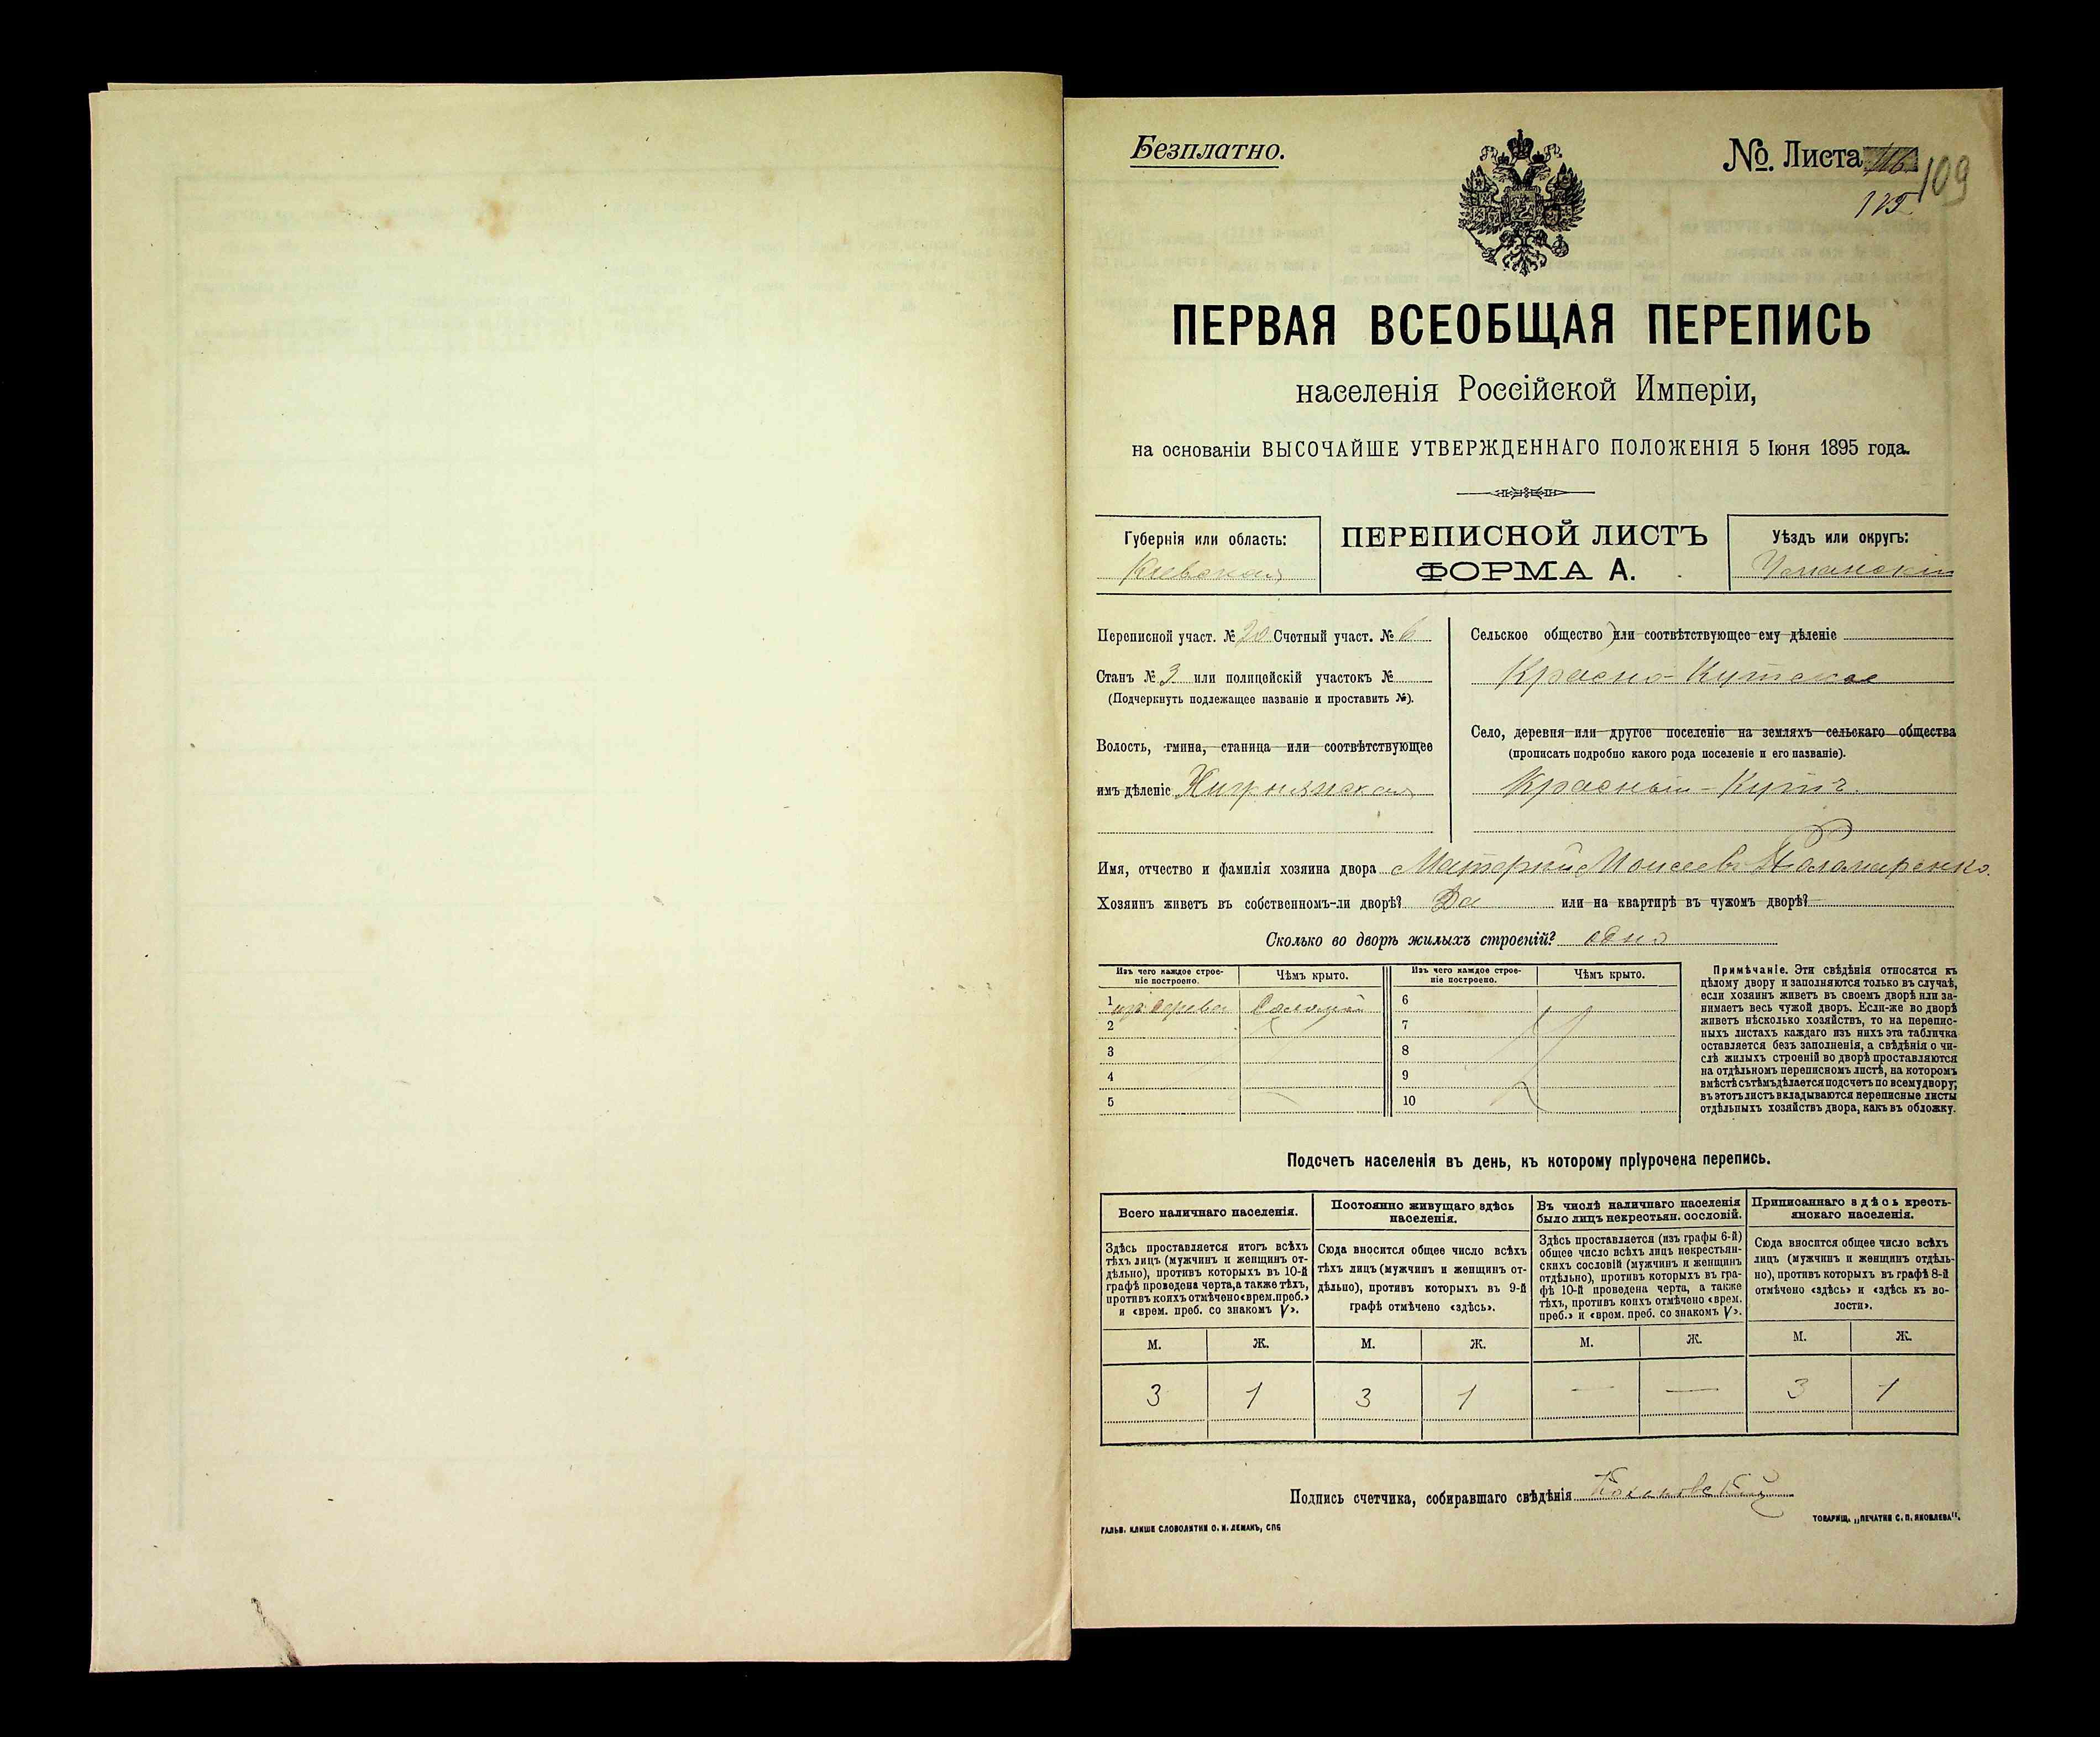 Безплатно.
№. Листа
109
ПЕРВАЯ ВСЕОБЩАЯ ПЕРЕПИСЬ
населенія Россійской Имперіи,
на основаніи ВЫСОЧАЙШЕ УТВЕРЖДЕННАГО ПОЛОЖЕНІЯ 5 Іюня 1895 года.
Губернія или область:
Кіевская
ПЕРЕПИСНОЙ ЛИСТЪ
ФОРМА А.
Уѣздъ или округъ:
Уманскій
Переписной участ. № 20 Счетный участ. № 6
Станъ № 3 или полицейскій участокъ №
(Подчеркнуть подлежащее названіе и проставить №).
Волость, гмина, станица или соотвѣтствующее
имъ дѣленіе
Сельское общество или соотвѣтствующее ему дѣленіе
Красно-Кутское
Село, деревня или другое поселеніе на земляхъ сельскаго общества
(прописать подробно какого рода поселеніе и его названіе).
Красный-Кутъ.
Имя, отчество и фамилія хозяина двора Моисеевъ Паламаренко.
Хозяинъ живетъ въ собственномъ-ли дворѣ? Да или на квартирѣ въ чужомъ дворѣ?
Сколько во дворѣ жилыхъ строеній? одно
Изъ чего каждое строе-
ніе построено.
Чѣмъ крыто.
Изъ чего каждое строе-
ніе построено.
Чѣмъ крыто.
1 изъ дерева Соломой 6
2 7
3 8
4 9
5 10
Примѣчаніе. Эти свѣдѣнія относятся къ
цѣлому двору и заполняются только въ случаѣ,
если хозяинъ живетъ въ своемъ дворѣ или за-
нимаетъ весь чужой дворъ. Если-же во дворѣ
живетъ нѣсколько хозяйствъ, то на перепис-
ныхъ листахъ каждаго изъ нихъ эта табличка
оставляется безъ заполненія, а свѣдѣнія о чи-
слѣ жилыхъ строеній во дворѣ проставляются
на отдѣльномъ переписномъ листѣ, на которомъ
вмѣстѣ съ тѣмъ дѣлается подсчетъ по всему двору;
въ этотъ листъ вкладываются переписные листы
отдѣльныхъ хозяйствъ двора, какъ въ обложку.
Подсчетъ населенія въ день, къ которому пріурочена перепись.
Всего наличнаго населенія.
Здѣсь проставляется итогъ всѣхъ
тѣхъ лицъ (мужчинъ и женщинъ от-
дѣльно), противъ которыхъ въ 10-й
графѣ проведена черта, а также тѣхъ,
противъ коихъ отмѣчено «врем. преб.»
и «врем. преб. со знакомъ V».
Постоянно живущаго здѣсь
населенія.
Сюда вносится общее число всѣхъ
тѣхъ лицъ (мужчинъ и женщинъ от-
дѣльно), противъ которыхъ въ 9-й
графѣ отмѣчено «здѣсь».
Въ числѣ наличнаго населенія
было лицъ некрестьян. сословій.
Здѣсь проставляется (изъ графы 6-й)
общее число всѣхъ лицъ некрестьян-
скихъ сословій (мужчинъ и женщинъ
отдѣльно), противъ которыхъ въ гра-
фѣ 10-й проведена черта, а также
тѣхъ, противъ коихъ отмѣчено «врем.
преб.» и «врем. преб. со знакомъ V».
Приписаннаго здѣсь кресть-
янскаго населенія.
Сюда вносится общее число всѣхъ
лицъ (мужчинъ и женщинъ отдѣль-
но), противъ которыхъ въ графѣ 8-й
отмѣчено «здѣсь» и «здѣсь къ во-
лости».
М. Ж. М. Ж. М. Ж. М. Ж.
3 1 3 1 — — 3 1
Подпись счетчика, собиравшаго свѣдѣнія
ГАЛЬВ. КЛИШЕ СЛОВОЛИТНИ О. И. ЛЕМАНЪ, СПБ
ТОВАРИЩ. „ПЕЧАТНИ С. П. ЯКОВЛЕВА".